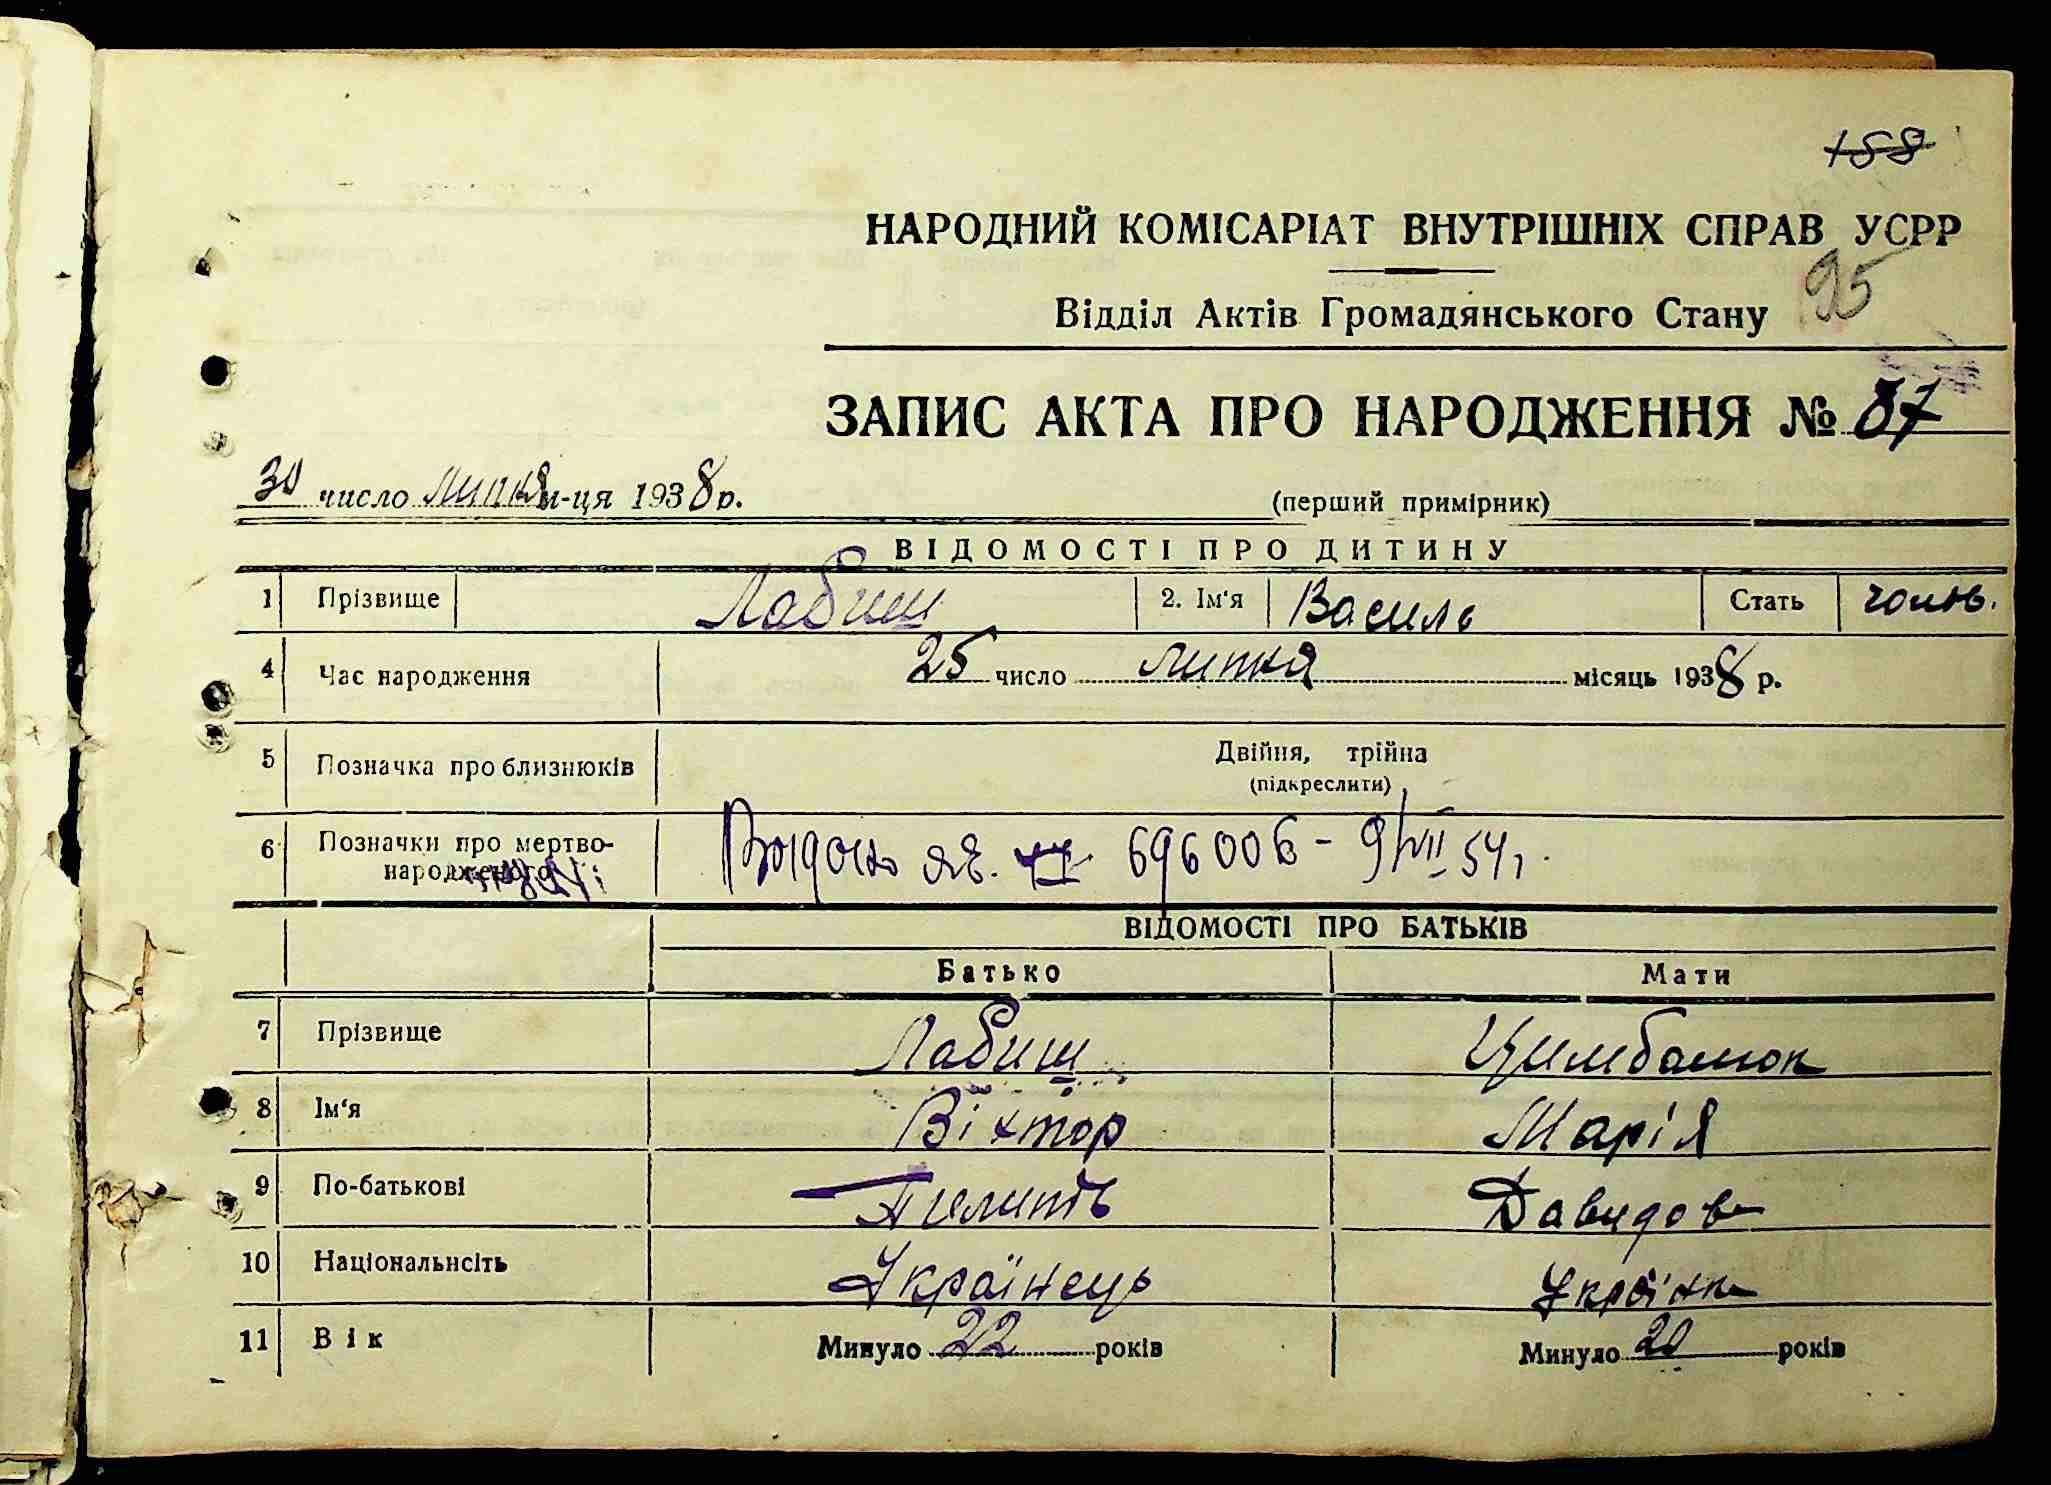 158
НАРОДНИЙ КОМІСАРІАТ ВНУТРІШНІХ СПРАВ УСРР
95
Відділ Актів Громадянського Стану
ЗАПИС АКТА ПРО НАРОДЖЕННЯ № 87
30 число липня м-ця 1938 р.
(перший примірник)
ВІДОМОСТІ ПРО ДИТИНУ
1 Прізвище Лабиш 2. Ім'я Василь Стать чолов.
4 Час народження 25 число липня місяць 1938 р.
5 Позначка про близнюків Двійня, трійна
(підкреслити)
6 Позначки про мертво-
народженого
696006 - 9/VII 54 г.
ВІДОМОСТІ ПРО БАТЬКІВ
Батько Мати
7 Прізвище Лабиш Цимбалюк
8 Ім'я Віктор Марія
9 По-батькові Пилипів Давидов
10 Національнсіть Українець Українка
11 Вік Минуло 22 років Минуло 20 років